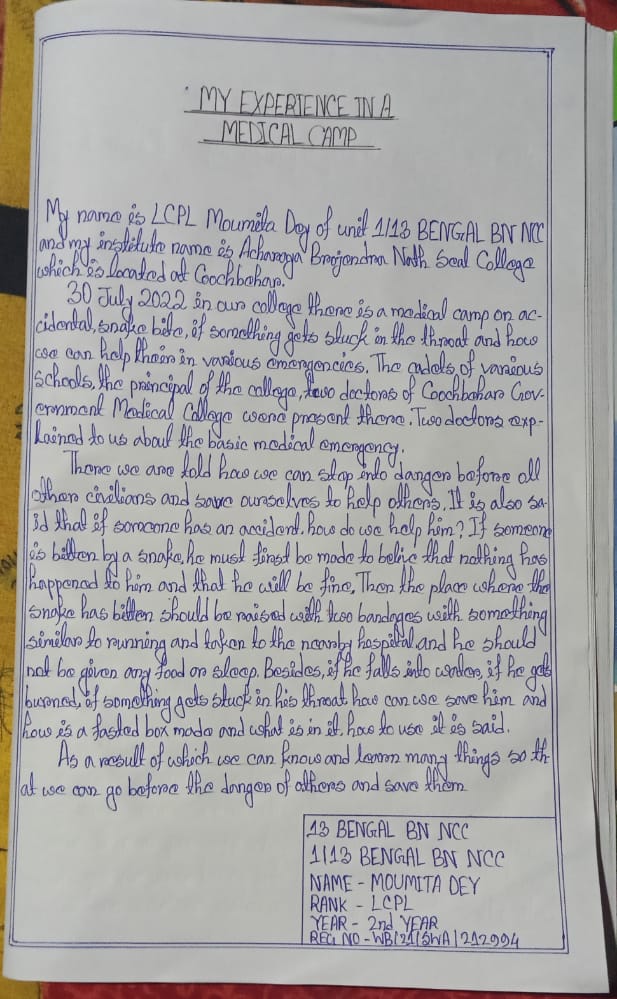 MY EXPERIENCE IN A
MEDICAL CAMP
My name is LCPL Moumita Dey of unit 1/13 BENGAL BN NCC
and my institute name is Acharya Brajendra Nath Seal College
which is located at Coochbehar.
30 July 2022 in our college there is a medical camp on ac-
cidental, snake bite, if something gets stuck in the throat and how
we can help them in various emergencies. The cadets of various
schools, the principal of the college, two doctors of Coochbehar Gov-
ernment Medical College were present there. Two doctors exp-
lained to us about the basic medical emergency.
There we are told how we can step into danger before all
other civilians and save ourselves to help others. It is also sa-
id that if someone has an accident, how do we help him? If someone
is bitten by a snake, he must first be made to belive that nothing has
happened to him and that he will be fine. Then the place where the
snake has bitten should be raised with two bandages with something
similar to running and taken to the nearby hospital and he should
not be given any food or sleep. Besides, if he falls into water, if he gets
burned, if something gets stuck in his throat how can we save him and
how is a fasted box made and what is in it. how to use it is said.
As a result of which we can know and learn many things so th
at we can go before the danger of others and save them
13 BENGAL BN NCC
1/13 BENGAL BN NCC
NAME - MOUMITA DEY
RANK - LCPL
YEAR - 2nd YEAR
REG NO - WB/21/SWA/212994